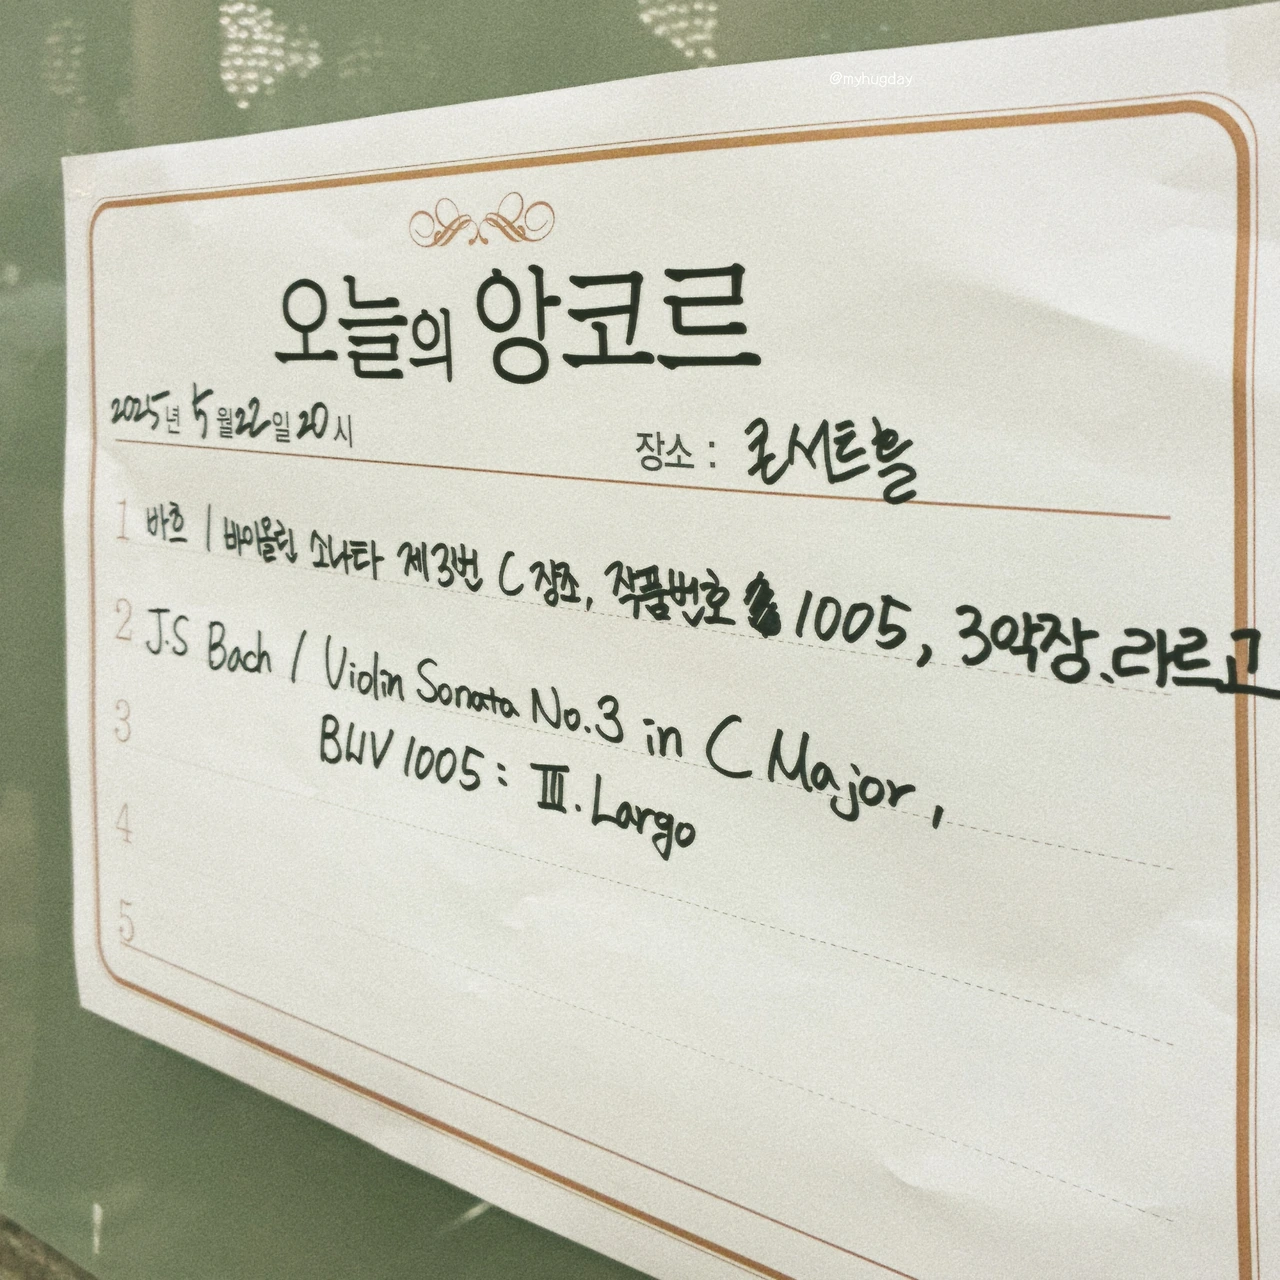 @myhugday
오늘의 앙코르
2025년 5월 22일 20시
장소 : 콘서트홀
1 바흐 / 바이올린 소나타 제3번 C장조, 작품번호 1005, 3악장. 라르고
2 J.S Bach / Violin Sonata No.3 in C Major,
3 BWV 1005 : III. Largo
4
5